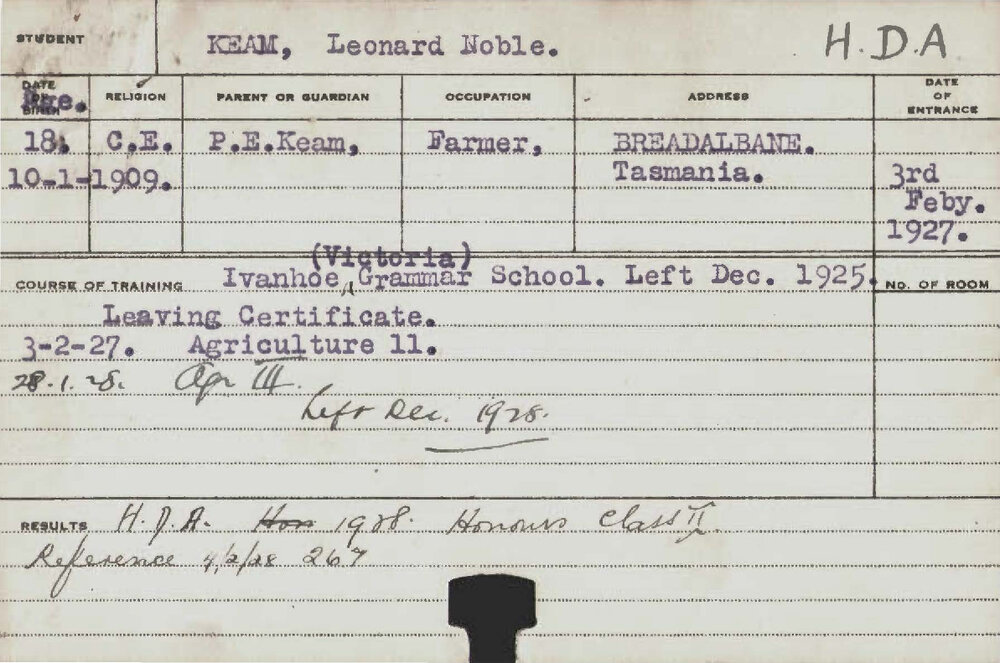 STUDENT KEAM, Leonard Noble. H.D.A
DATE OF BIRTH Age. RELIGION PARENT OR GUARDIAN OCCUPATION ADDRESS DATE OF ENTRANCE
18. C.E. P.E.Keam, Farmer, BREADALBANE.
10-1-1909. Tasmania. 3rd
Feby.
1927.
(Victoria)
COURSE OF TRAINING Ivanhoe Grammar School. Left Dec. 1925. NO. OF ROOM
Leaving Certificate.
3-2-27. Agriculture 11.
28.1.28. Agr III.
Left Dec. 1928.
RESULTS H.D.A. Hon 1928. Honours Class II
Reference 4/2/28 267